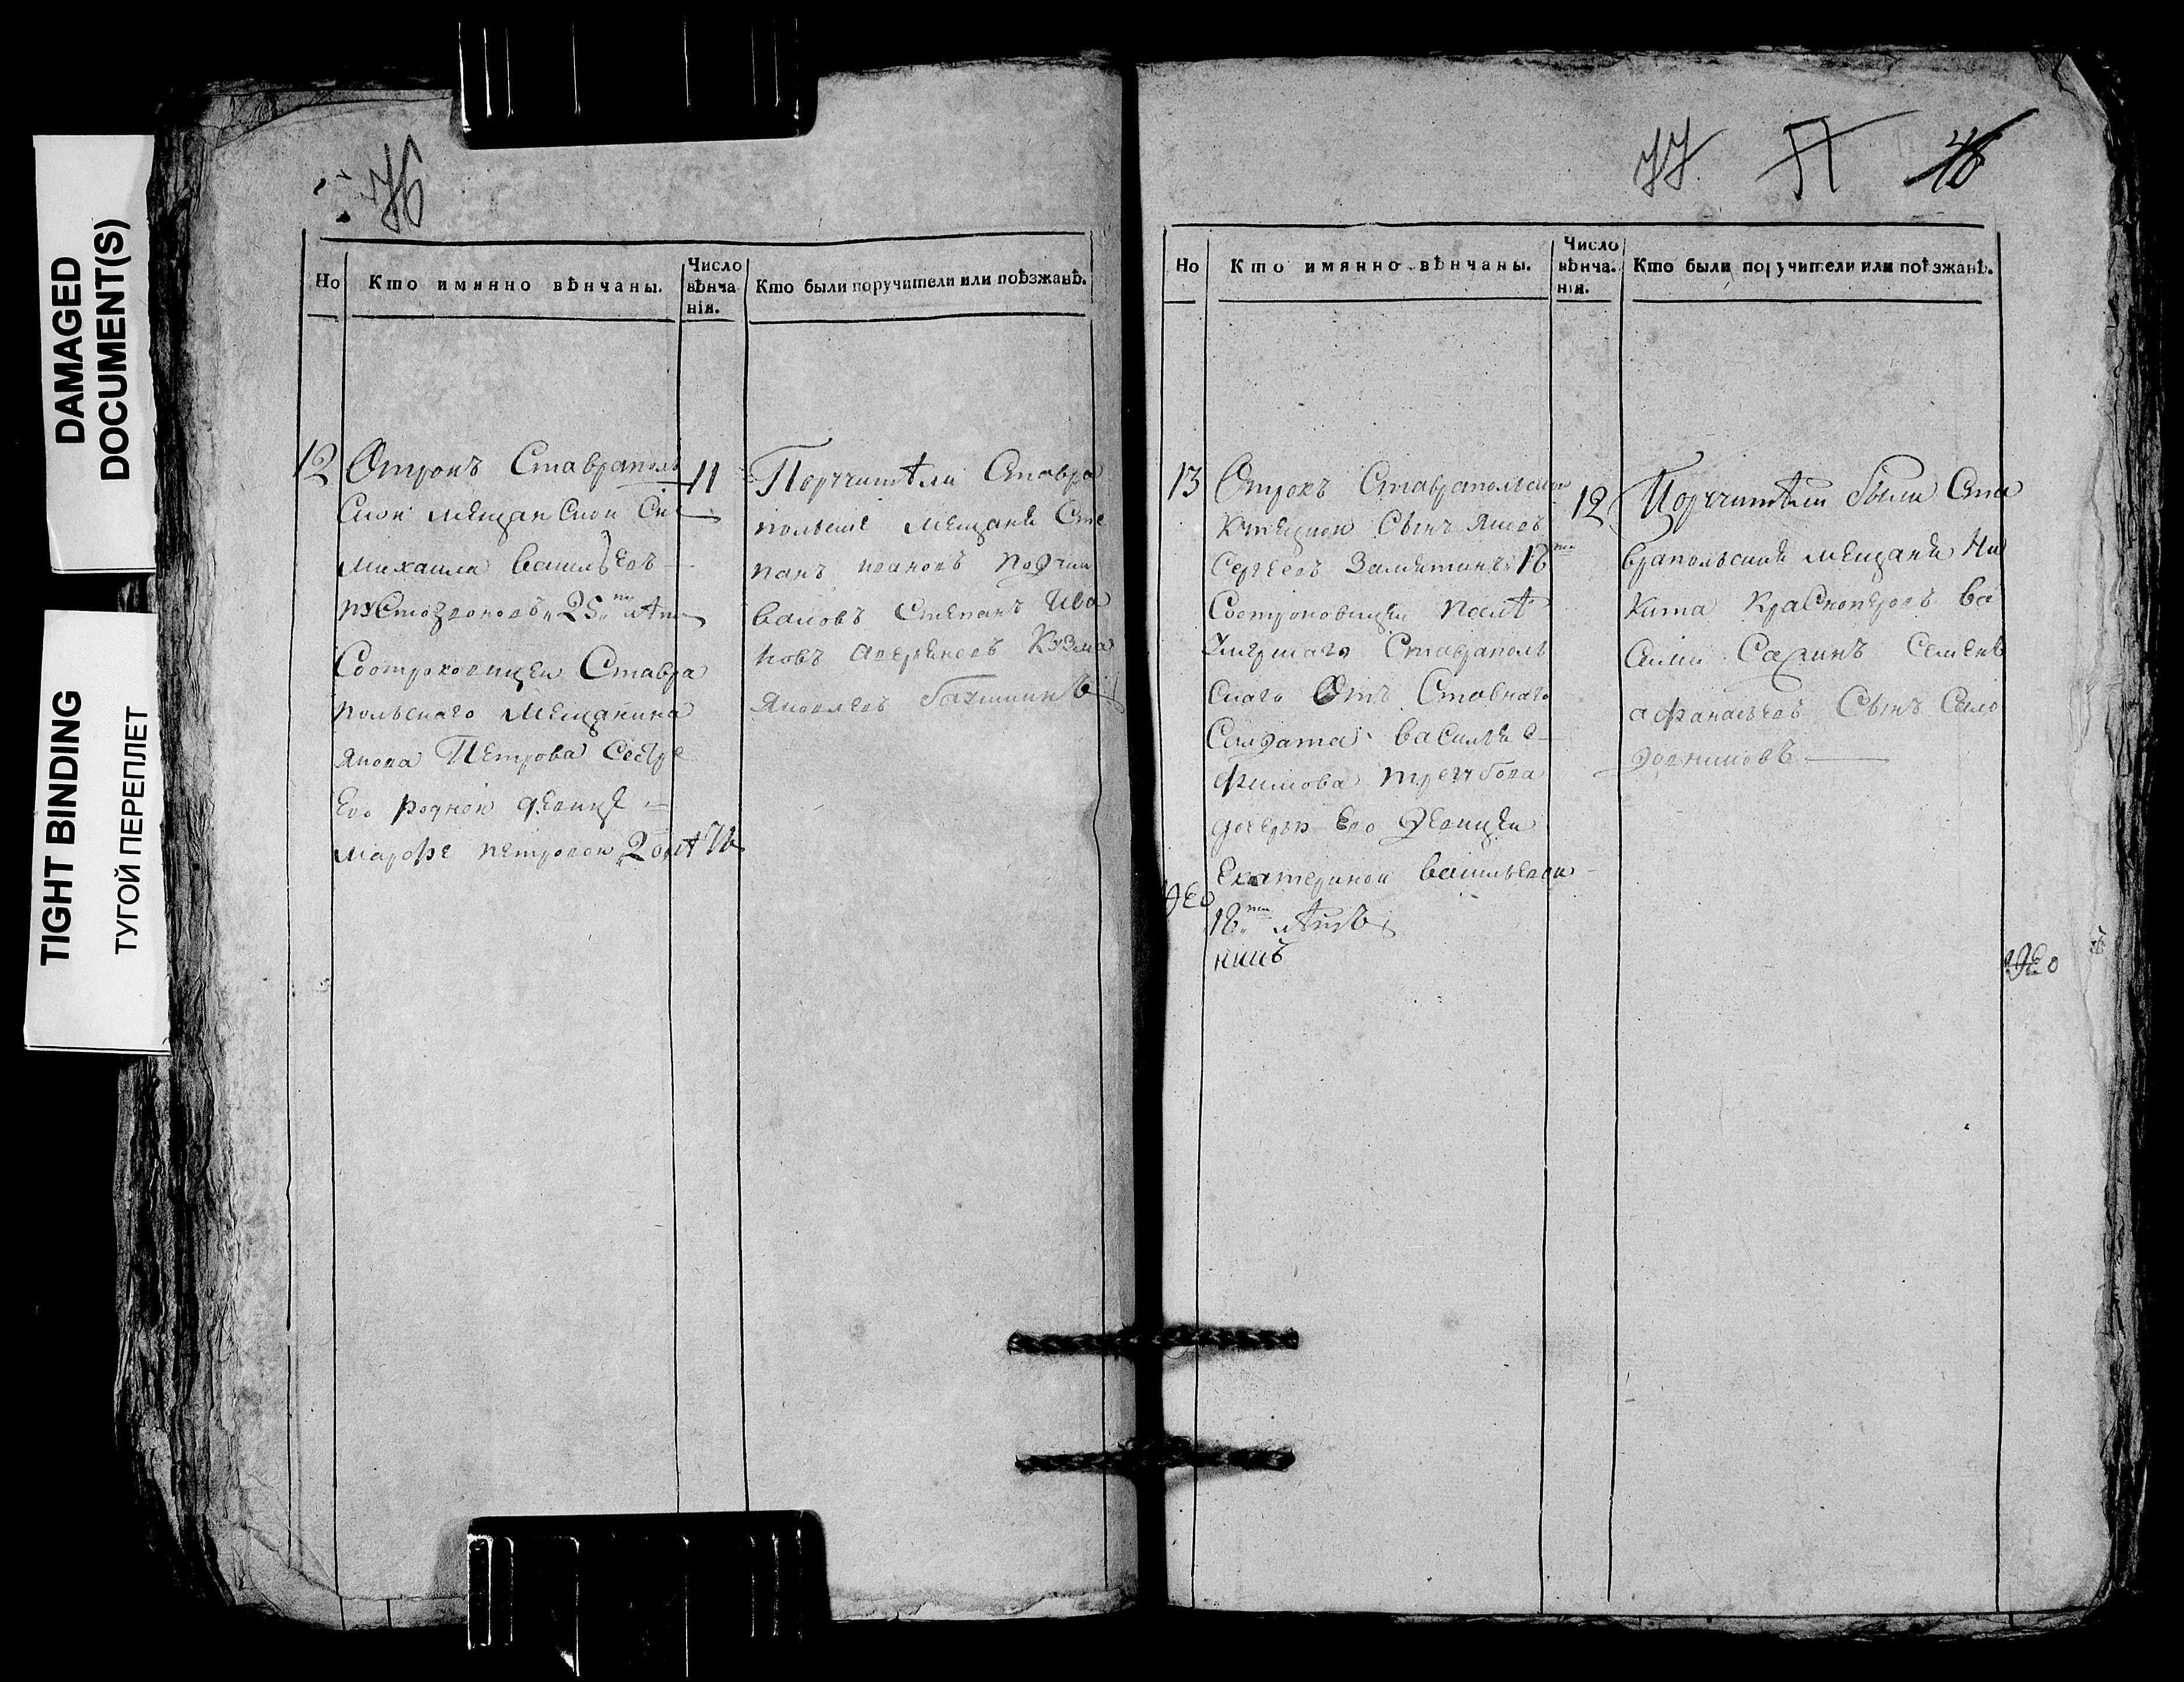 DAMAGED
DOCUMENT(S)
TIGHT BINDING
ТУГОЙ ПЕРЕПЛЕТ
76
Но
Кто имянно вѣнчаны.
Число
вѣнча
нія.
Кто были поручители или поѣзжанѣ.
12
Отрокъ Ставраполь
ской мещанской Сн
михаила васильевъ
25 лѣт
Соотроковицеи Ставра
польскаго мещанина
якова Петрова Сестре
Его родной девице
марфе петровой 20 лѣтъ
11
Поручители Ставра
польские мещане Сте
панъ ивановъ подчи
валовъ Степанъ Ива
новъ аверкиевъ Кузма
яковлевъ
77
77
76
Но
Кто имянно вѣнчаны.
Число
вѣнча.
нія.
Кто были поручители или поѣзжанѣ.
13
Отрокъ Ставрапольской
Купецкой Сынъ яковъ
Сергеевъ Замятинъ 18
Соотроковицеи послѣ
умершаго Ставраполь
скаго Отъ Ставнаго
Салдата василья е
фимова
дочерью Его Девицеи
Екатериной васильевой
18 лѣтъ
12
Поручители были Ста
врапольские мещане Ни
кита Красноперовъ ва
силий Семенъ
афанасьевъ Сынъ Село